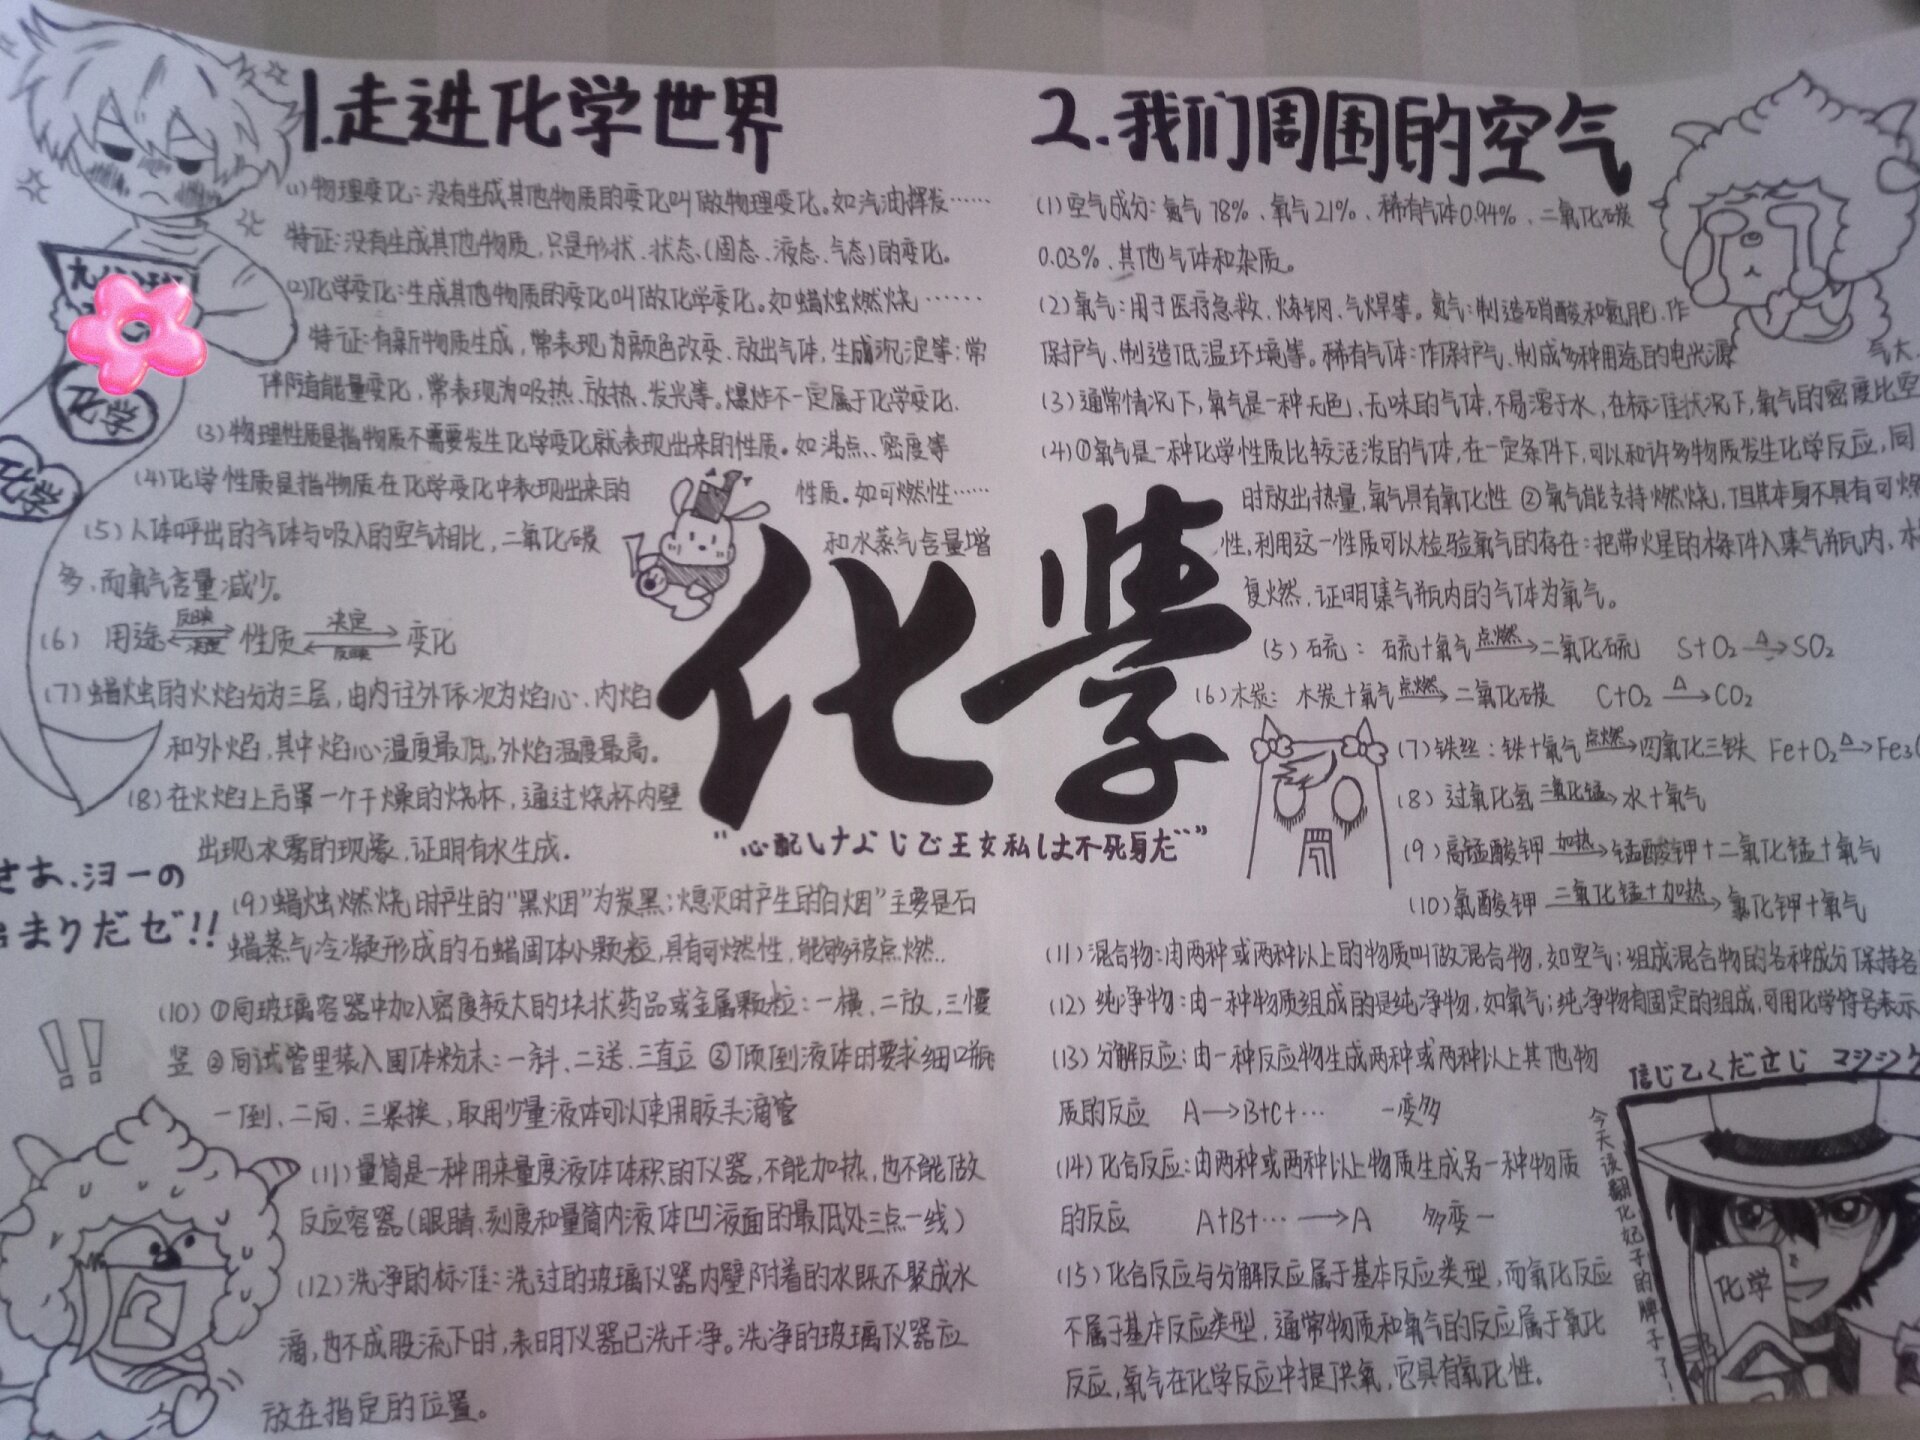 1.走进化学世界
(1)物理变化:没有生成其他物质的变化叫做物理变化。如汽油挥发……
特征:没有生成其他物质,只是形状、状态、(固态、液态、气态)的变化。
(2)化学变化:生成其他物质的变化叫做化学变化。如蜡烛燃烧……
特征:有新物质生成,常表现为颜色改变、放出气体,生成沉淀等;常
伴随能量变化,常表现为吸热、放热、发光等。爆炸不一定属于化学变化.
(3)物理性质是指物质不需要发生化学变化就表现出来的性质。如沸点、密度等
(4)化学性质是指物质在化学变化中表现出来的 性质。如可燃性……
(5)人体呼出的气体与吸入的空气相比,二氧化碳 和水蒸气含量增
多,而氧气含量减少。
(6) 用途 反映 决定 性质 决定 反映 变化
(7)蜡烛的火焰分为三层,由内往外依次为焰心、内焰
和外焰,其中焰心温度最低,外焰温度最高。
(8)在火焰上方罩一个干燥的烧杯,通过烧杯内壁
出现水雾的现象,证明有水生成.
(9)蜡烛燃烧时产生的“黑烟”为炭黑;熄灭时产生的“白烟”主要是石
蜡蒸气冷凝形成的石蜡固体小颗粒,具有可燃性,能够被点燃..
(10)①向玻璃容器中加入密度较大的块状药品或金属颗粒:一横、二放,三慢
竖 ②向试管里装入固体粉末:一斜、二送、三直立 ③倾倒液体时要求细口瓶
一倒、二向、三紧挨,取用少量液体可以使用胶头滴管
(11)量筒是一种用来量度液体体积的仪器,不能加热,也不能做
反应容器(眼睛、刻度和量筒内液体凹液面的最低处三点一线)
(12)洗净的标准:洗过的玻璃仪器内壁附着的水既不聚成水
滴,也不成股流下时,表明仪器已洗干净。洗净的玻璃仪器应
放在指定的位置。
化学
化学
さあ、ヨーの
まりだゼ!!
!!
化学
“心配しナよじで王女私は不死身だ”
2.我们周围的空气
(1)空气成分:氮气78%、氧气21%、稀有气体0.94%、二氧化碳
0.03%、其他气体和杂质。
(2)氧气:用于医疗急救、炼钢、气焊等。氮气:制造硝酸和氮肥、作
保护气、制造低温环境等。稀有气体:作保护气、制成多种用途的电光源
气大.
(3)通常情况下,氧气是一种无色、无味的气体,不易溶于水,在标准状况下,氧气的密度比空
(4)①氧气是一种化学性质比较活泼的气体,在一定条件下,可以和许多物质发生化学反应,同
时放出热量,氧气具有氧化性 ②氧气能支持燃烧,但其本身不具有可燃
性,利用这一性质可以检验氧气的存在:把带火星的木条伸入集气瓶内,木
复燃,证明集气瓶内的气体为氧气。
(5)石硫: 石硫+氧气 点燃→二氧化石硫 S+O₂ △→SO₂
(6)木炭: 木炭+氧气 点燃→二氧化碳 C+O₂ △→CO₂
(7)铁丝:铁+氧气 点燃→四氧化三铁 Fe+O₂ △→Fe₃
(8)过氧化氢 二氧化锰→水+氧气
(9)高锰酸钾 加热→锰酸钾+二氧化锰+氧气
(10)氯酸钾 二氧化锰+加热→氯化钾+氧气
(11)混合物:由两种或两种以上的物质叫做混合物,如空气;组成混合物的各种成分保持各
(12)纯净物:由一种物质组成的是纯净物,如氧气;纯净物有固定的组成,可用化学符号表示
(13)分解反应:由一种反应物生成两种或两种以上其他物
质的反应 A→B+C+… 一变多
(14)化合反应:由两种或两种以上物质生成另一种物质
的反应 A+B+…→A 多变一
(15)化合反应与分解反应属于基本反应类型,而氧化反应
不属于基本反应类型,通常物质和氧气的反应属于氧化
反应,氧气在化学反应中提供氧,它具有氧化性。
信じてください
今天该翻化妃子的牌子了!
化学